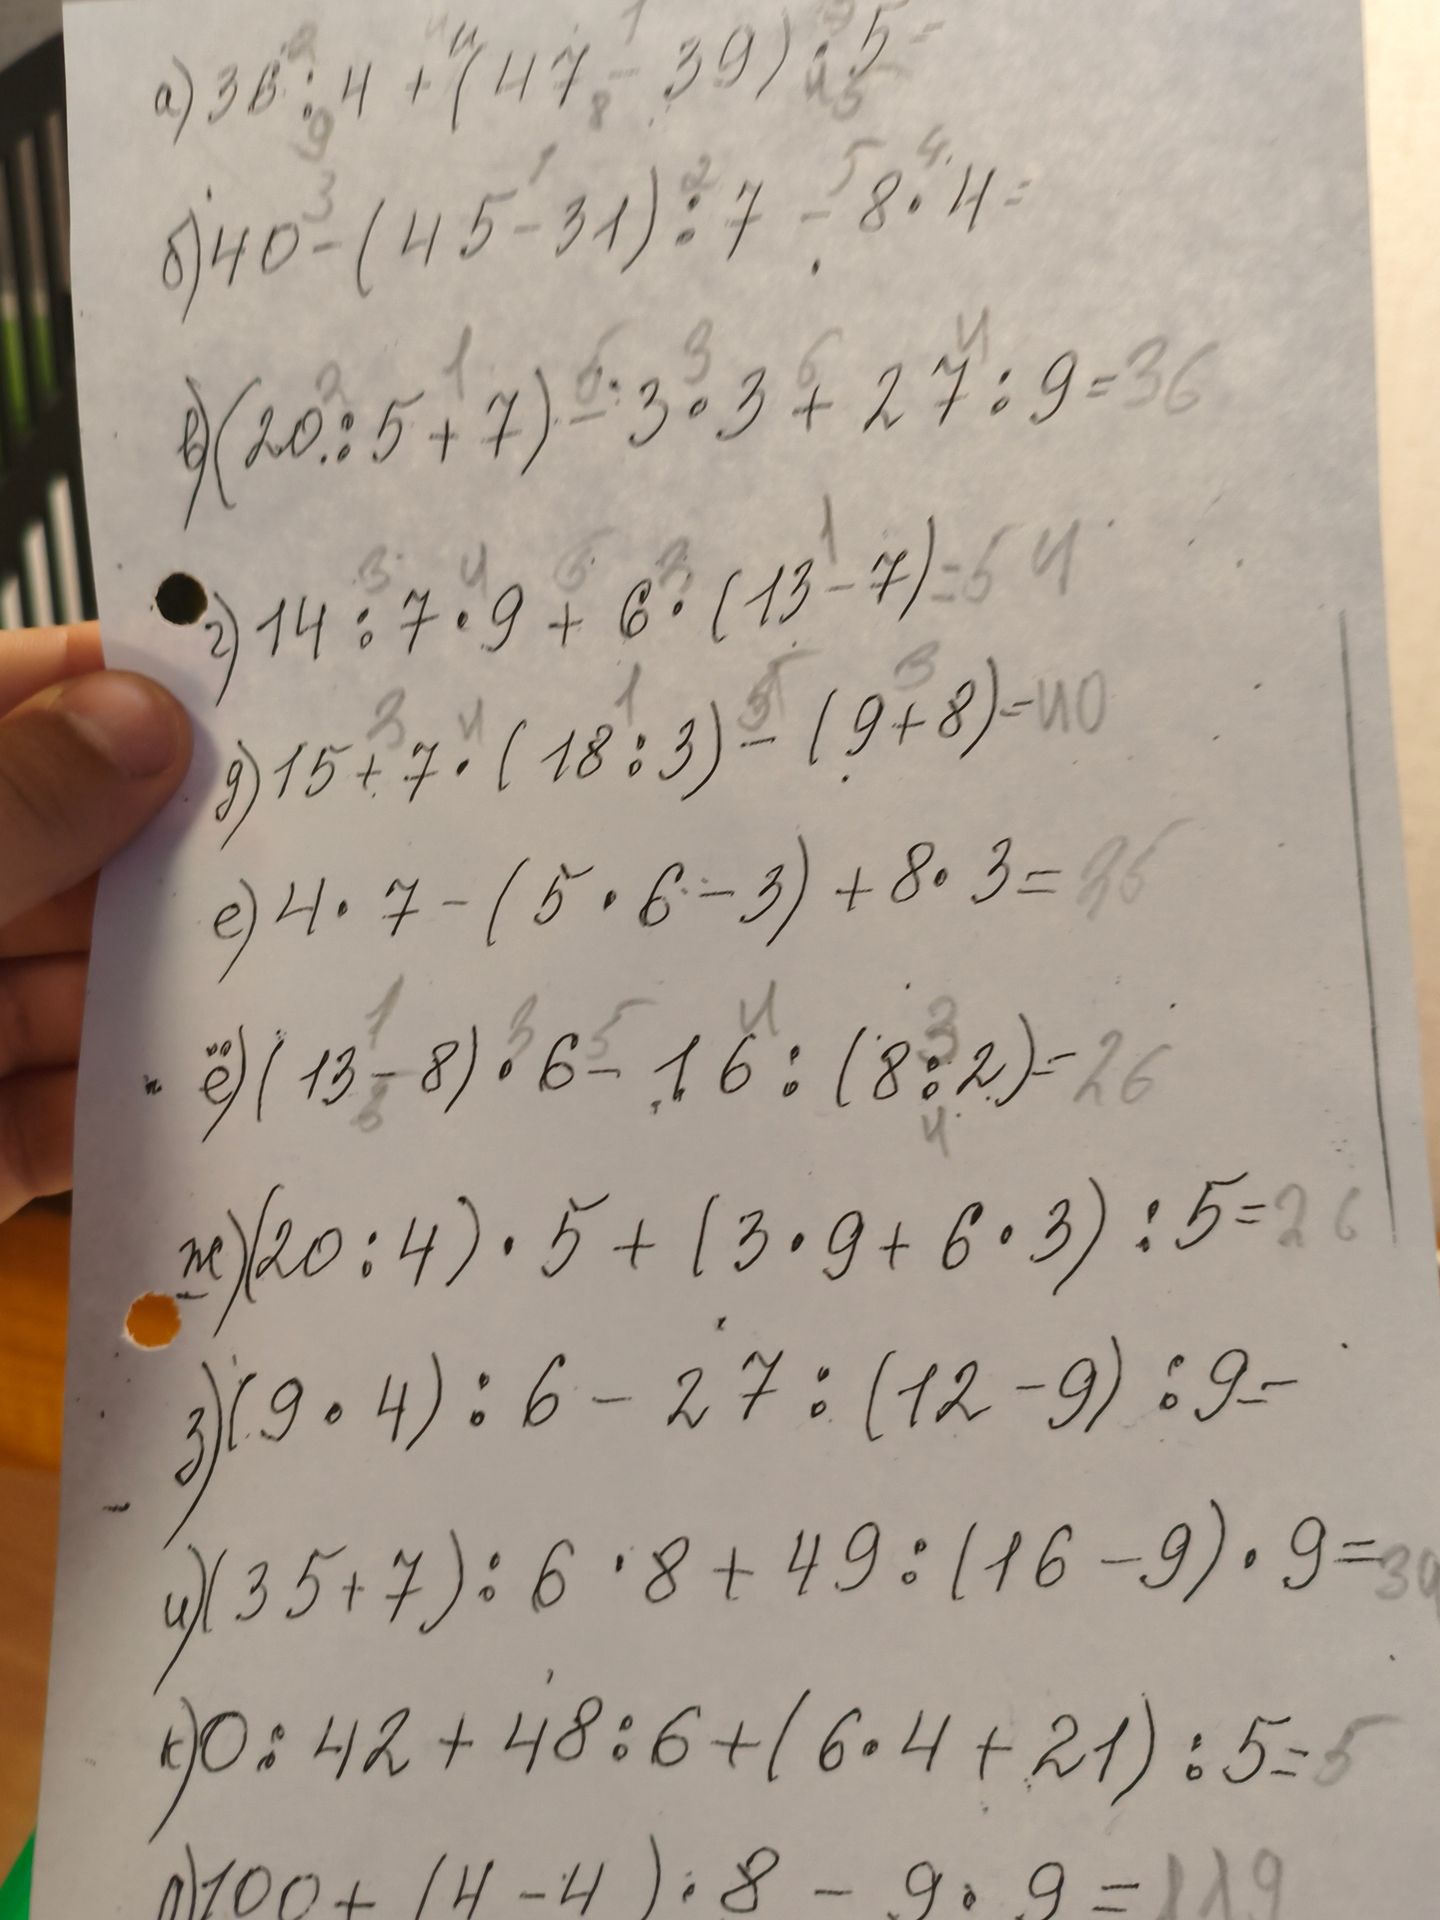 а) 36 : 4 + (47 - 39) · 5 =
б) 40 - (45 - 31) : 7 - 8 · 4 =
в) (20 : 5 + 7) - 3 · 3 + 27 : 9 = 36
г) 14 : 7 · 9 + 6 · (13 - 7) = 54
д) 15 + 7 · (18 : 3) - (9 + 8) = 40
е) 4 · 7 - (5 · 6 - 3) + 8 · 3 = 35
ё) (13 - 8) · 6 - 16 : (8 : 2) = 26
ж) (20 : 4) · 5 + (3 · 9 + 6 · 3) : 5 = 26
з) (9 · 4) : 6 - 27 : (12 - 9) : 9 =
и) (35 + 7) : 6 · 8 + 49 : (16 - 9) · 9 =
к) 0 : 42 + 48 : 6 + (6 · 4 + 21) : 5 = 5
л) 100 + (4 - 4) · 8 - 9 · 9 = 119